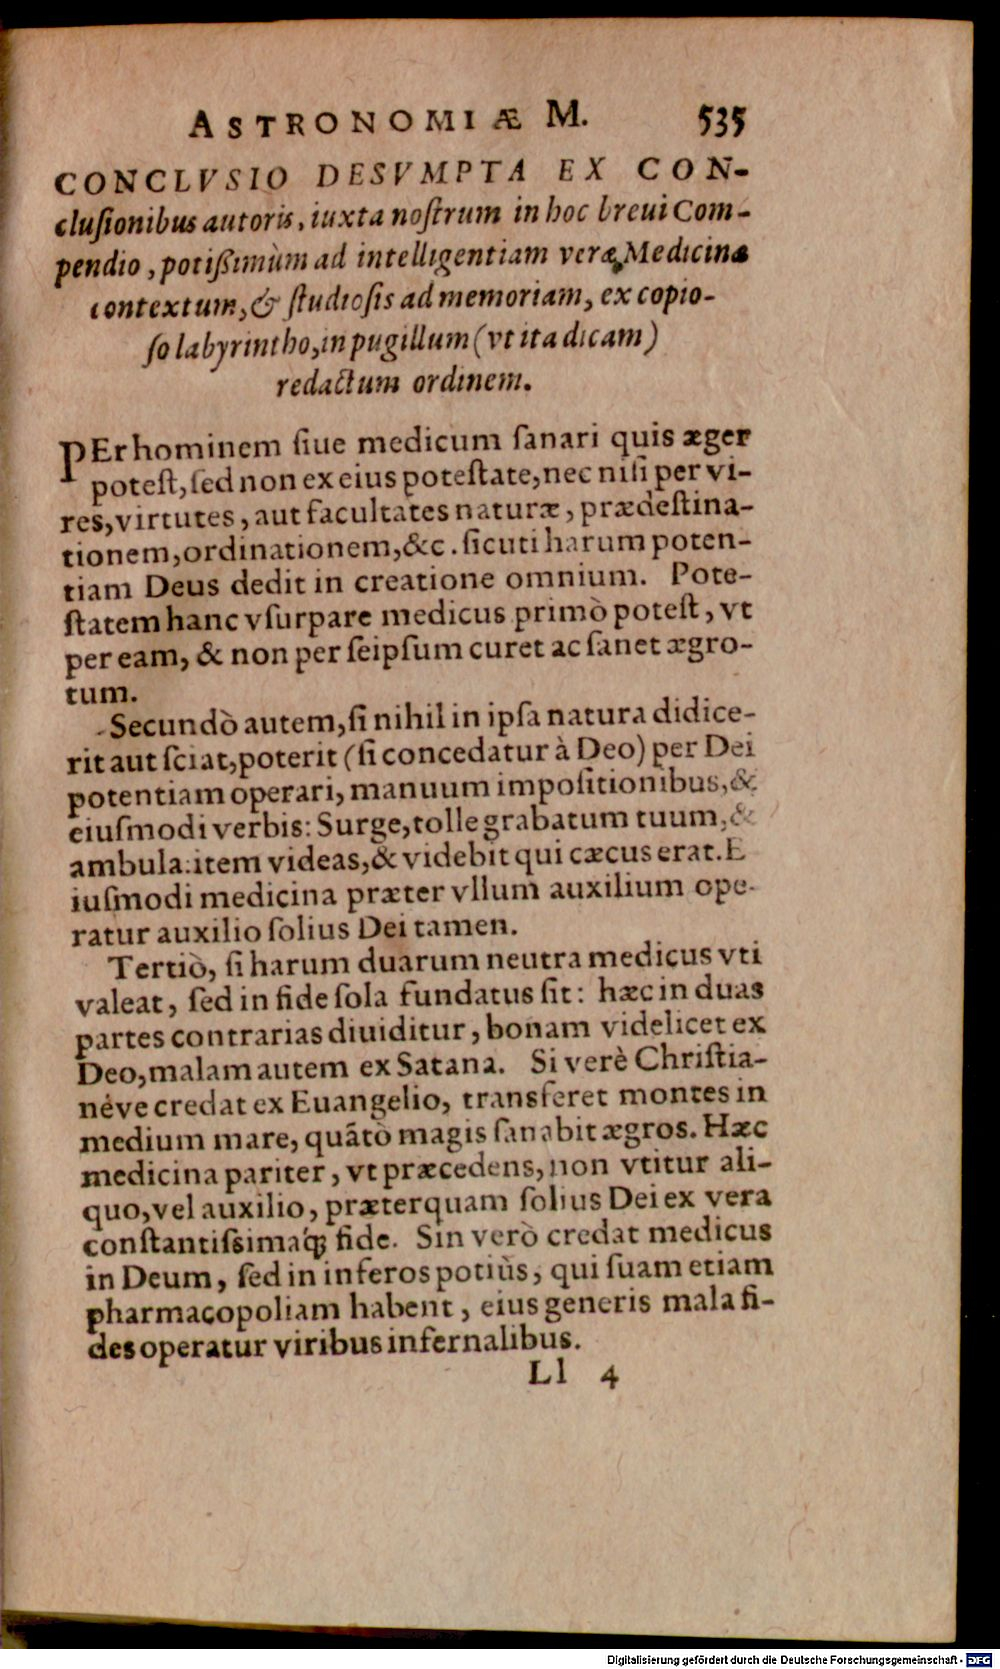 ASTRONOMIÆ M. 535
CONCLVSIO DESVMPTA EX CON-
cluſionibus autoris, iuxta noſtrum in hoc breui Com-
pendio, potißimùm ad intelligentiam veræ Medicinæ
contextum, & ſtudioſis ad memoriam, ex copio-
ſo labyrintho, in pugillum (vt ita dicam)
redactum ordinem.
PEr hominem ſiue medicum ſanari quis æger
poteſt, ſed non ex eius poteſtate, nec niſi per vi-
res, virtutes, aut facultates naturæ, prædeſtina-
tionem, ordinationem, &c. ſicuti harum poten-
tiam Deus dedit in creatione omnium. Pote-
ſtatem hanc vſurpare medicus primò poteſt, vt
per eam, & non per ſeipſum curet ac ſanet ægro-
tum.
Secundò autem, ſi nihil in ipſa natura didice-
rit aut ſciat, poterit (ſi concedatur à Deo) per Dei
potentiam operari, manuum impoſitionibus, &
eiuſmodi verbis: Surge, tolle grabatum tuum, &
ambula: item videas, & videbit qui cæcus erat. E
iuſmodi medicina præter vllum auxilium ope-
ratur auxilio ſolius Dei tamen.
Tertiò, ſi harum duarum neutra medicus vti
valeat, ſed in fide ſola fundatus ſit: hæc in duas
partes contrarias diuiditur, bonam videlicet ex
Deo, malam autem ex Satana. Si verè Chriſtia-
néve credat ex Euangelio, transferet montes in
medium mare, quātò magis ſanabit ægros. Hæc
medicina pariter, vt præcedens, non vtitur ali-
quo, vel auxilio, præterquam ſolius Dei ex vera
conſtantiſsimaq́ꝫ fide. Sin verò credat medicus
in Deum, ſed in inferos potiùs, qui ſuam etiam
pharmacopoliam habent, eius generis mala fi-
des operatur viribus infernalibus.
Ll 4
Digitalisierung gefördert durch die Deutsche Forschungsgemeinschaft - DFG